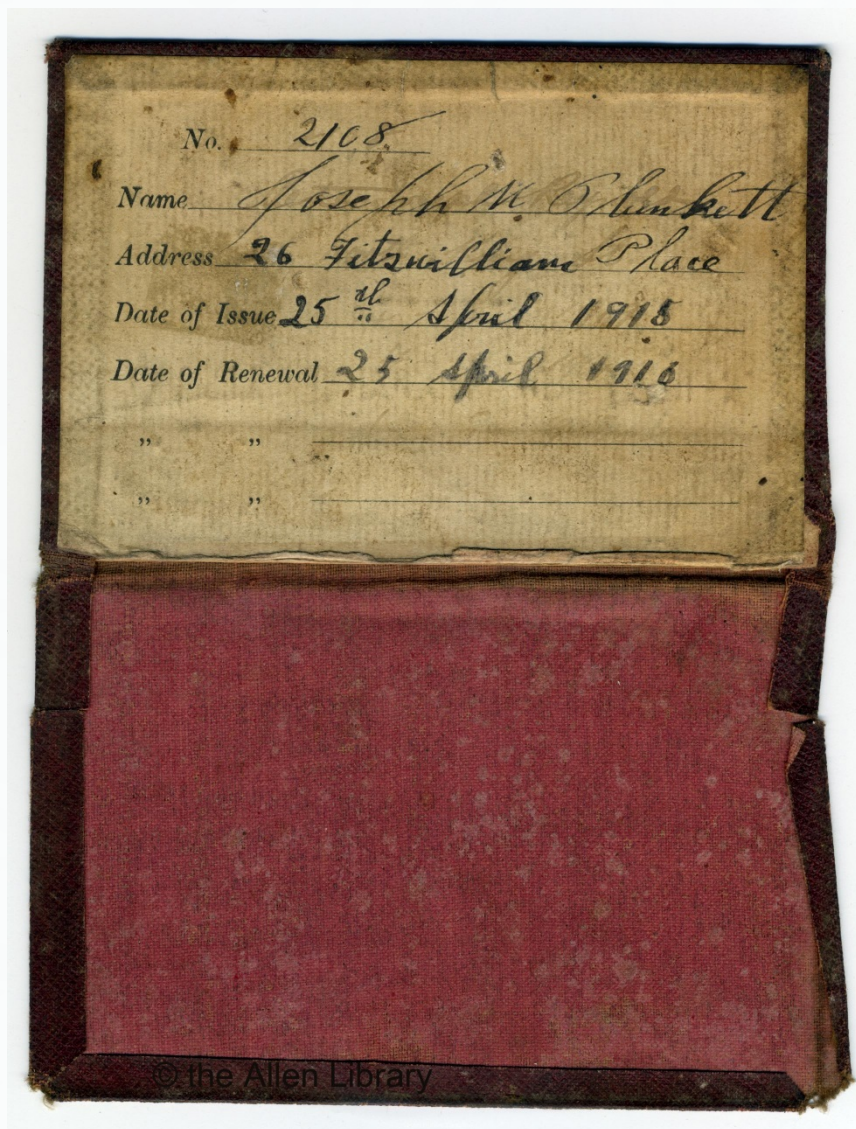 No. 2108
Name Joseph M Plunkett
Address 26 Fitzwilliam Place
Date of Issue 25th April 1915
Date of Renewal 25 April 1916
„ „
„ „
© the Allen Library